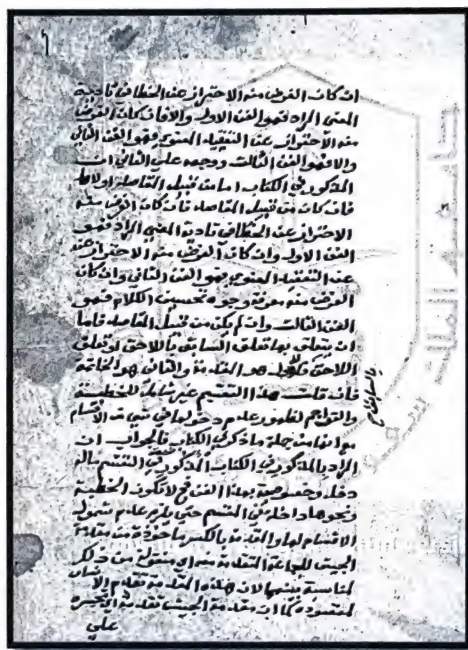 ان كان الغرض منه الاحتراز عن الخطأ في تادية
المعنى المراد فهو الفن الاول والا فان كان الغرض
منه الاحتراز عن التعقيد المعنوي فهو الفن الثاني
والا فهو الفن الثالث ووجهه على الثاني ان
المذكور في الكتاب اما من قبيل المقاصد او لا
فان كان من قبيل المقاصد فان كان الغرض منه
الاحتراز عن الخطأ في تادية المعنى المراد فهو
الفن الاول وان كان الغرض منه الاحتراز عنه
عن التعقيد المعنوي فهو الفن الثاني وان كان
الغرض منه معرفة وجوه تحسين الكلام فهو
الفن الثالث وان لم يكن من قبيل المقاصد فاما
ان يتعلق بها تعلق السابق باللاحق او تعلق
اللاحق فالاول هو المقدمة والثاني هو الخاتمة
فان قلت هذا التقسيم غير شامل للخطبة
والتراجم لظهور عدم دخولها في شيء من الاقسام
مع انها من جملة ما ذكر في الكتاب فالجواب ان
المراد بالمذكور في الكتاب المذكور في التقسيم ماله
دخل وخصوصية بهذا الفن فح لا تكون الخطبة
ونحوها داخلة في المقسم حتى يلزم عدم شمول
الاقسام لها والمقدمة بالكسر ماخوذة من مقدمة
الجيش للجماعة المتقدمة منه اي منقولة من ذلك
لمناسبة بينهما لان هذه المقدمة تقدم الانسان
لمقصوده كما ان مقدمة الجيش تقدمه اي تجسره
على
بالسابق اللاحق